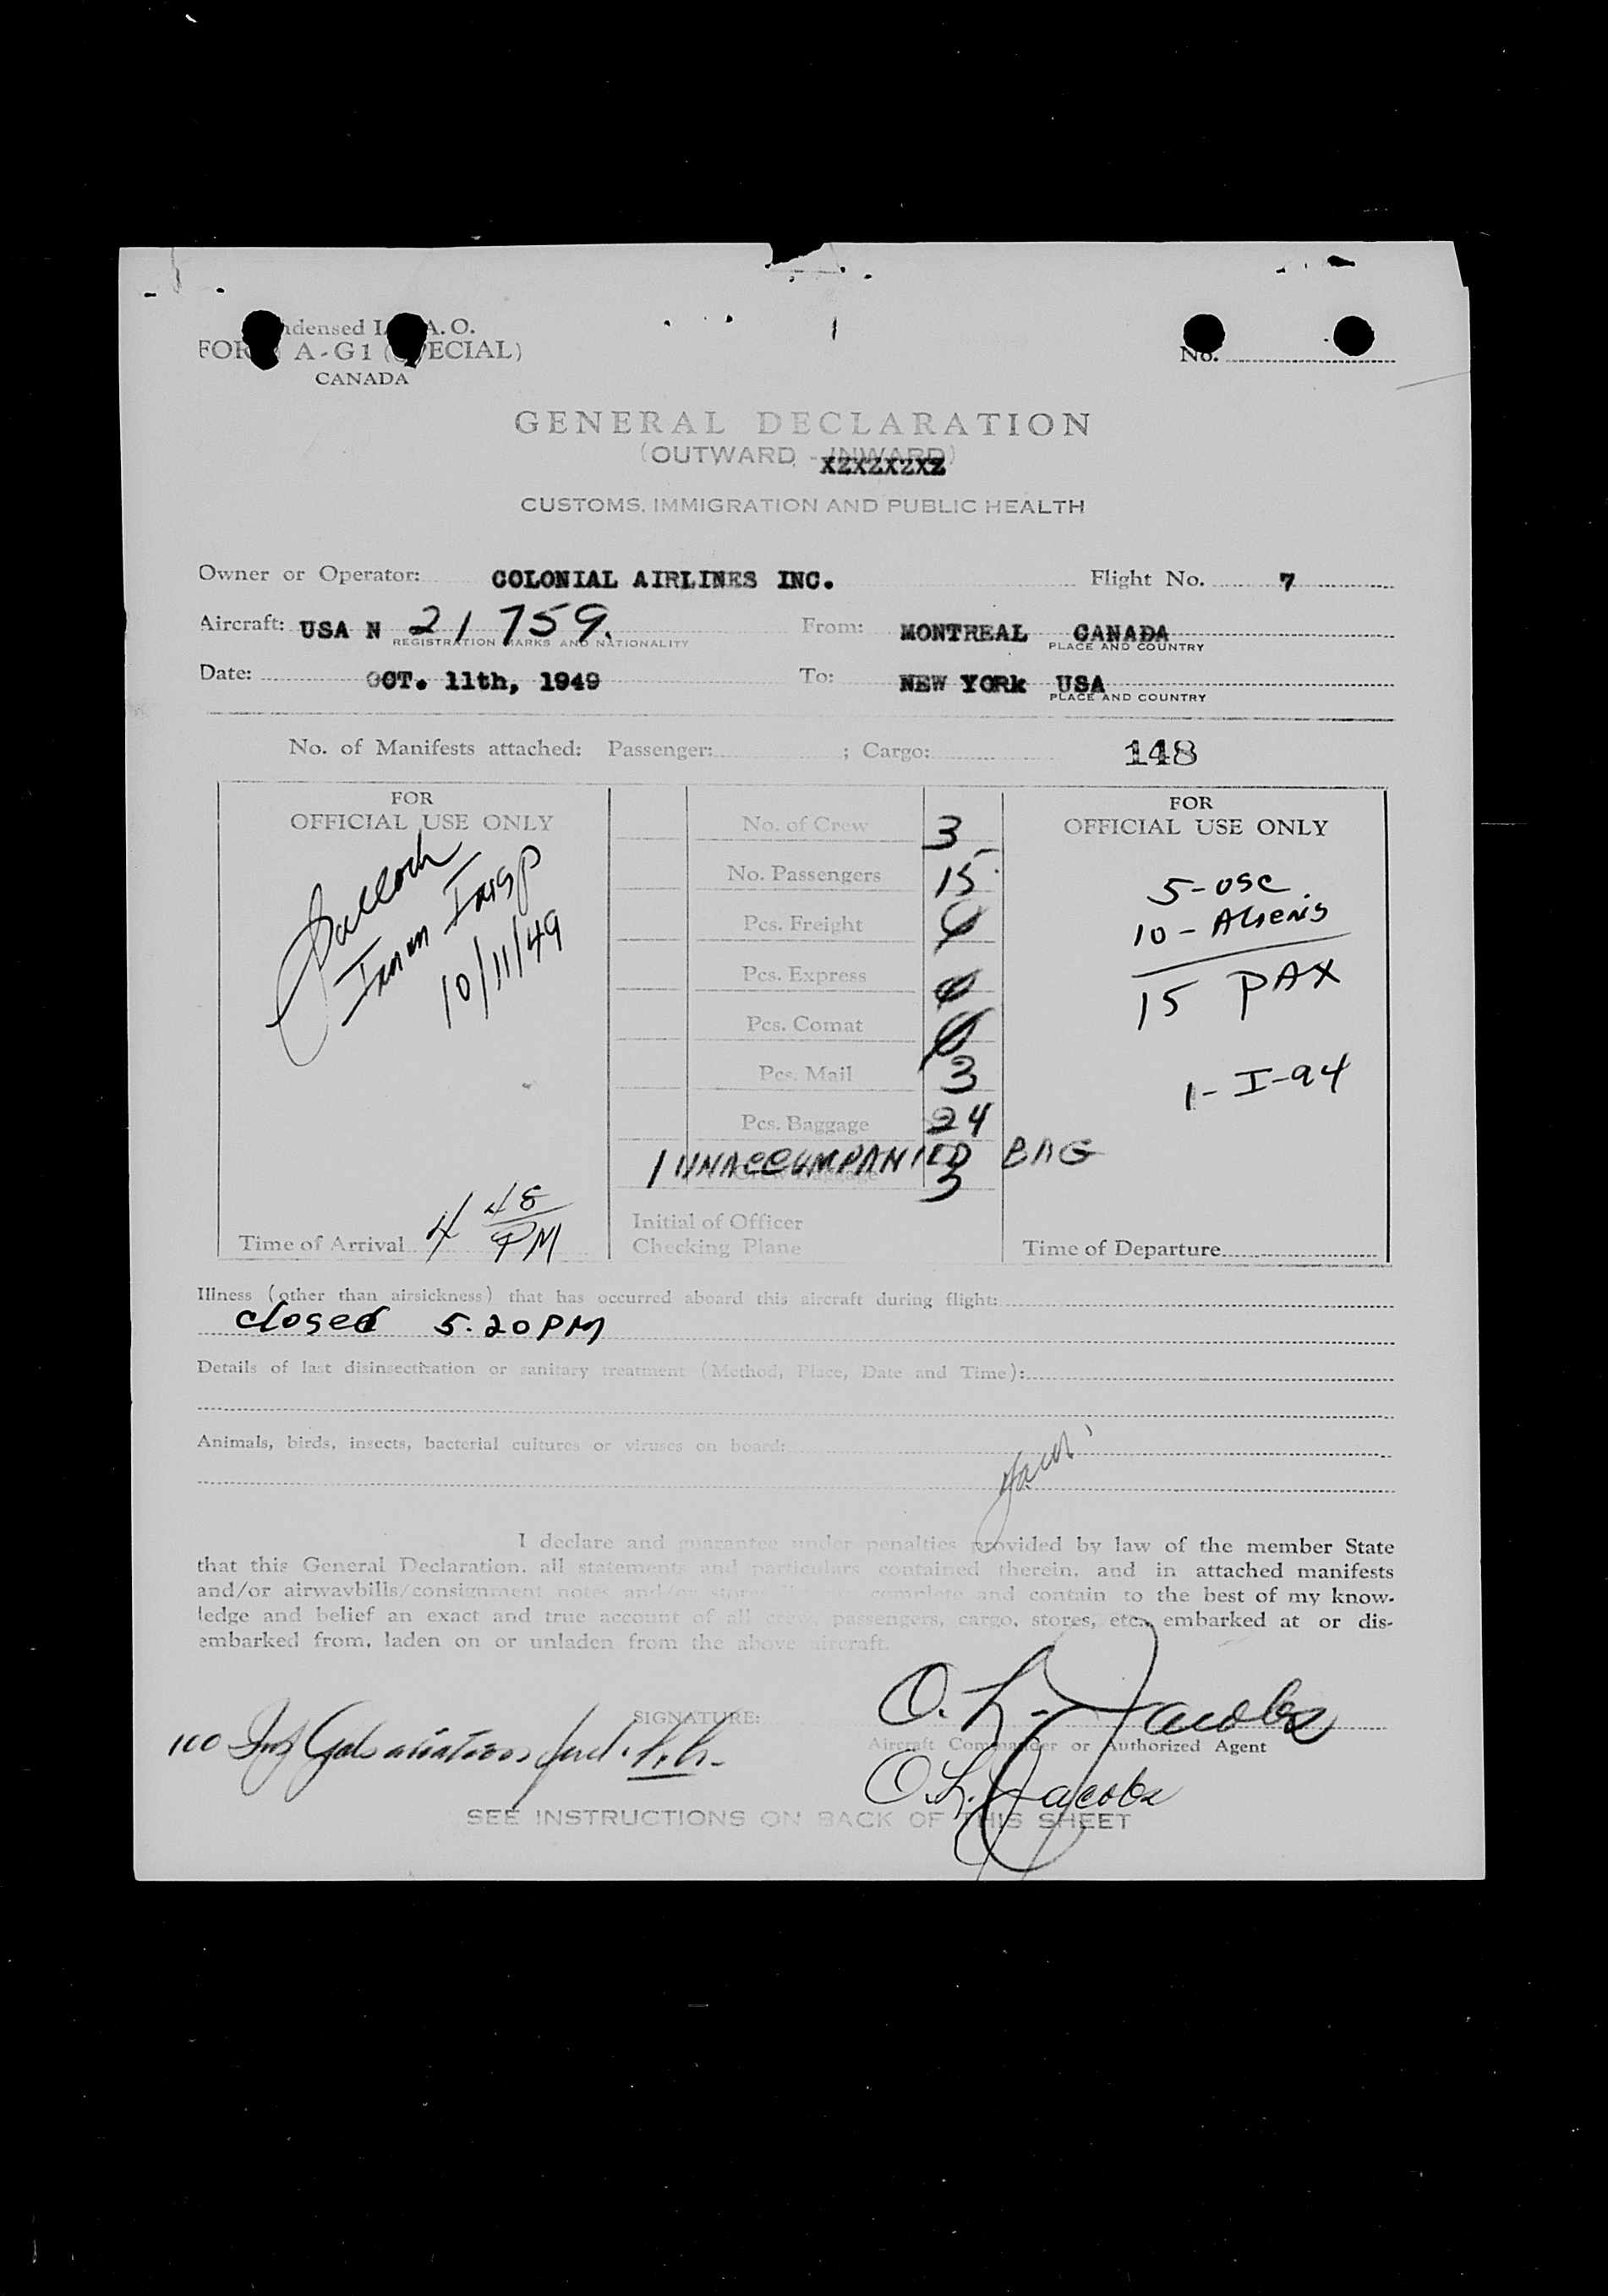 ndensed I A. O.
FOR A-G1 (SPECIAL)
CANADA
No.
GENERAL DECLARATION
(OUTWARD - INWARD)
XZXZXZXZ
CUSTOMS, IMMIGRATION AND PUBLIC HEALTH
Owner or Operator: COLONIAL AIRLINES INC. Flight No. 7
Aircraft: USA N 21759. From: MONTREAL CANADA
REGISTRATION MARKS AND NATIONALITY PLACE AND COUNTRY
Date: OCT. 11th, 1949 To: NEW YORK USA
PLACE AND COUNTRY
No. of Manifests attached: Passenger: ; Cargo: 148
FOR
OFFICIAL USE ONLY
Imm Insp
10/11/49
Time of Arrival 4 48 PM
No. of Crew 3
No. Passengers 15
Pcs. Freight
Pcs. Express
Pcs. Comat
Pcs. Mail 3
Pcs. Baggage 24
1 UNACCOMPANIED BAG
Crew Baggage 3
Initial of Officer
Checking Plane
FOR
OFFICIAL USE ONLY
5-USC
10-Aliens
15 PAX
1-I-94
Time of Departure
Illness (other than airsickness) that has occurred aboard this aircraft during flight:
closed 5.20 PM
Details of last disinsectization or sanitary treatment (Method, Place, Date and Time):
Animals, birds, insects, bacterial cultures or viruses on board:
I declare and guarantee under penalties provided by law of the member State
that this General Declaration, all statements and particulars contained therein, and in attached manifests
and/or airwaybills/consignment notes and/or stores complete and contain to the best of my know-
ledge and belief an exact and true account of all crew, passengers, cargo, stores, etc., embarked at or dis-
embarked from, laden on or unladen from the above aircraft.
SIGNATURE: O. L. Jacobs
Aircraft Commander or Authorized Agent
100 Gals aviation fuel.
O. L. Jacobs
SEE INSTRUCTIONS ON BACK OF THIS SHEET